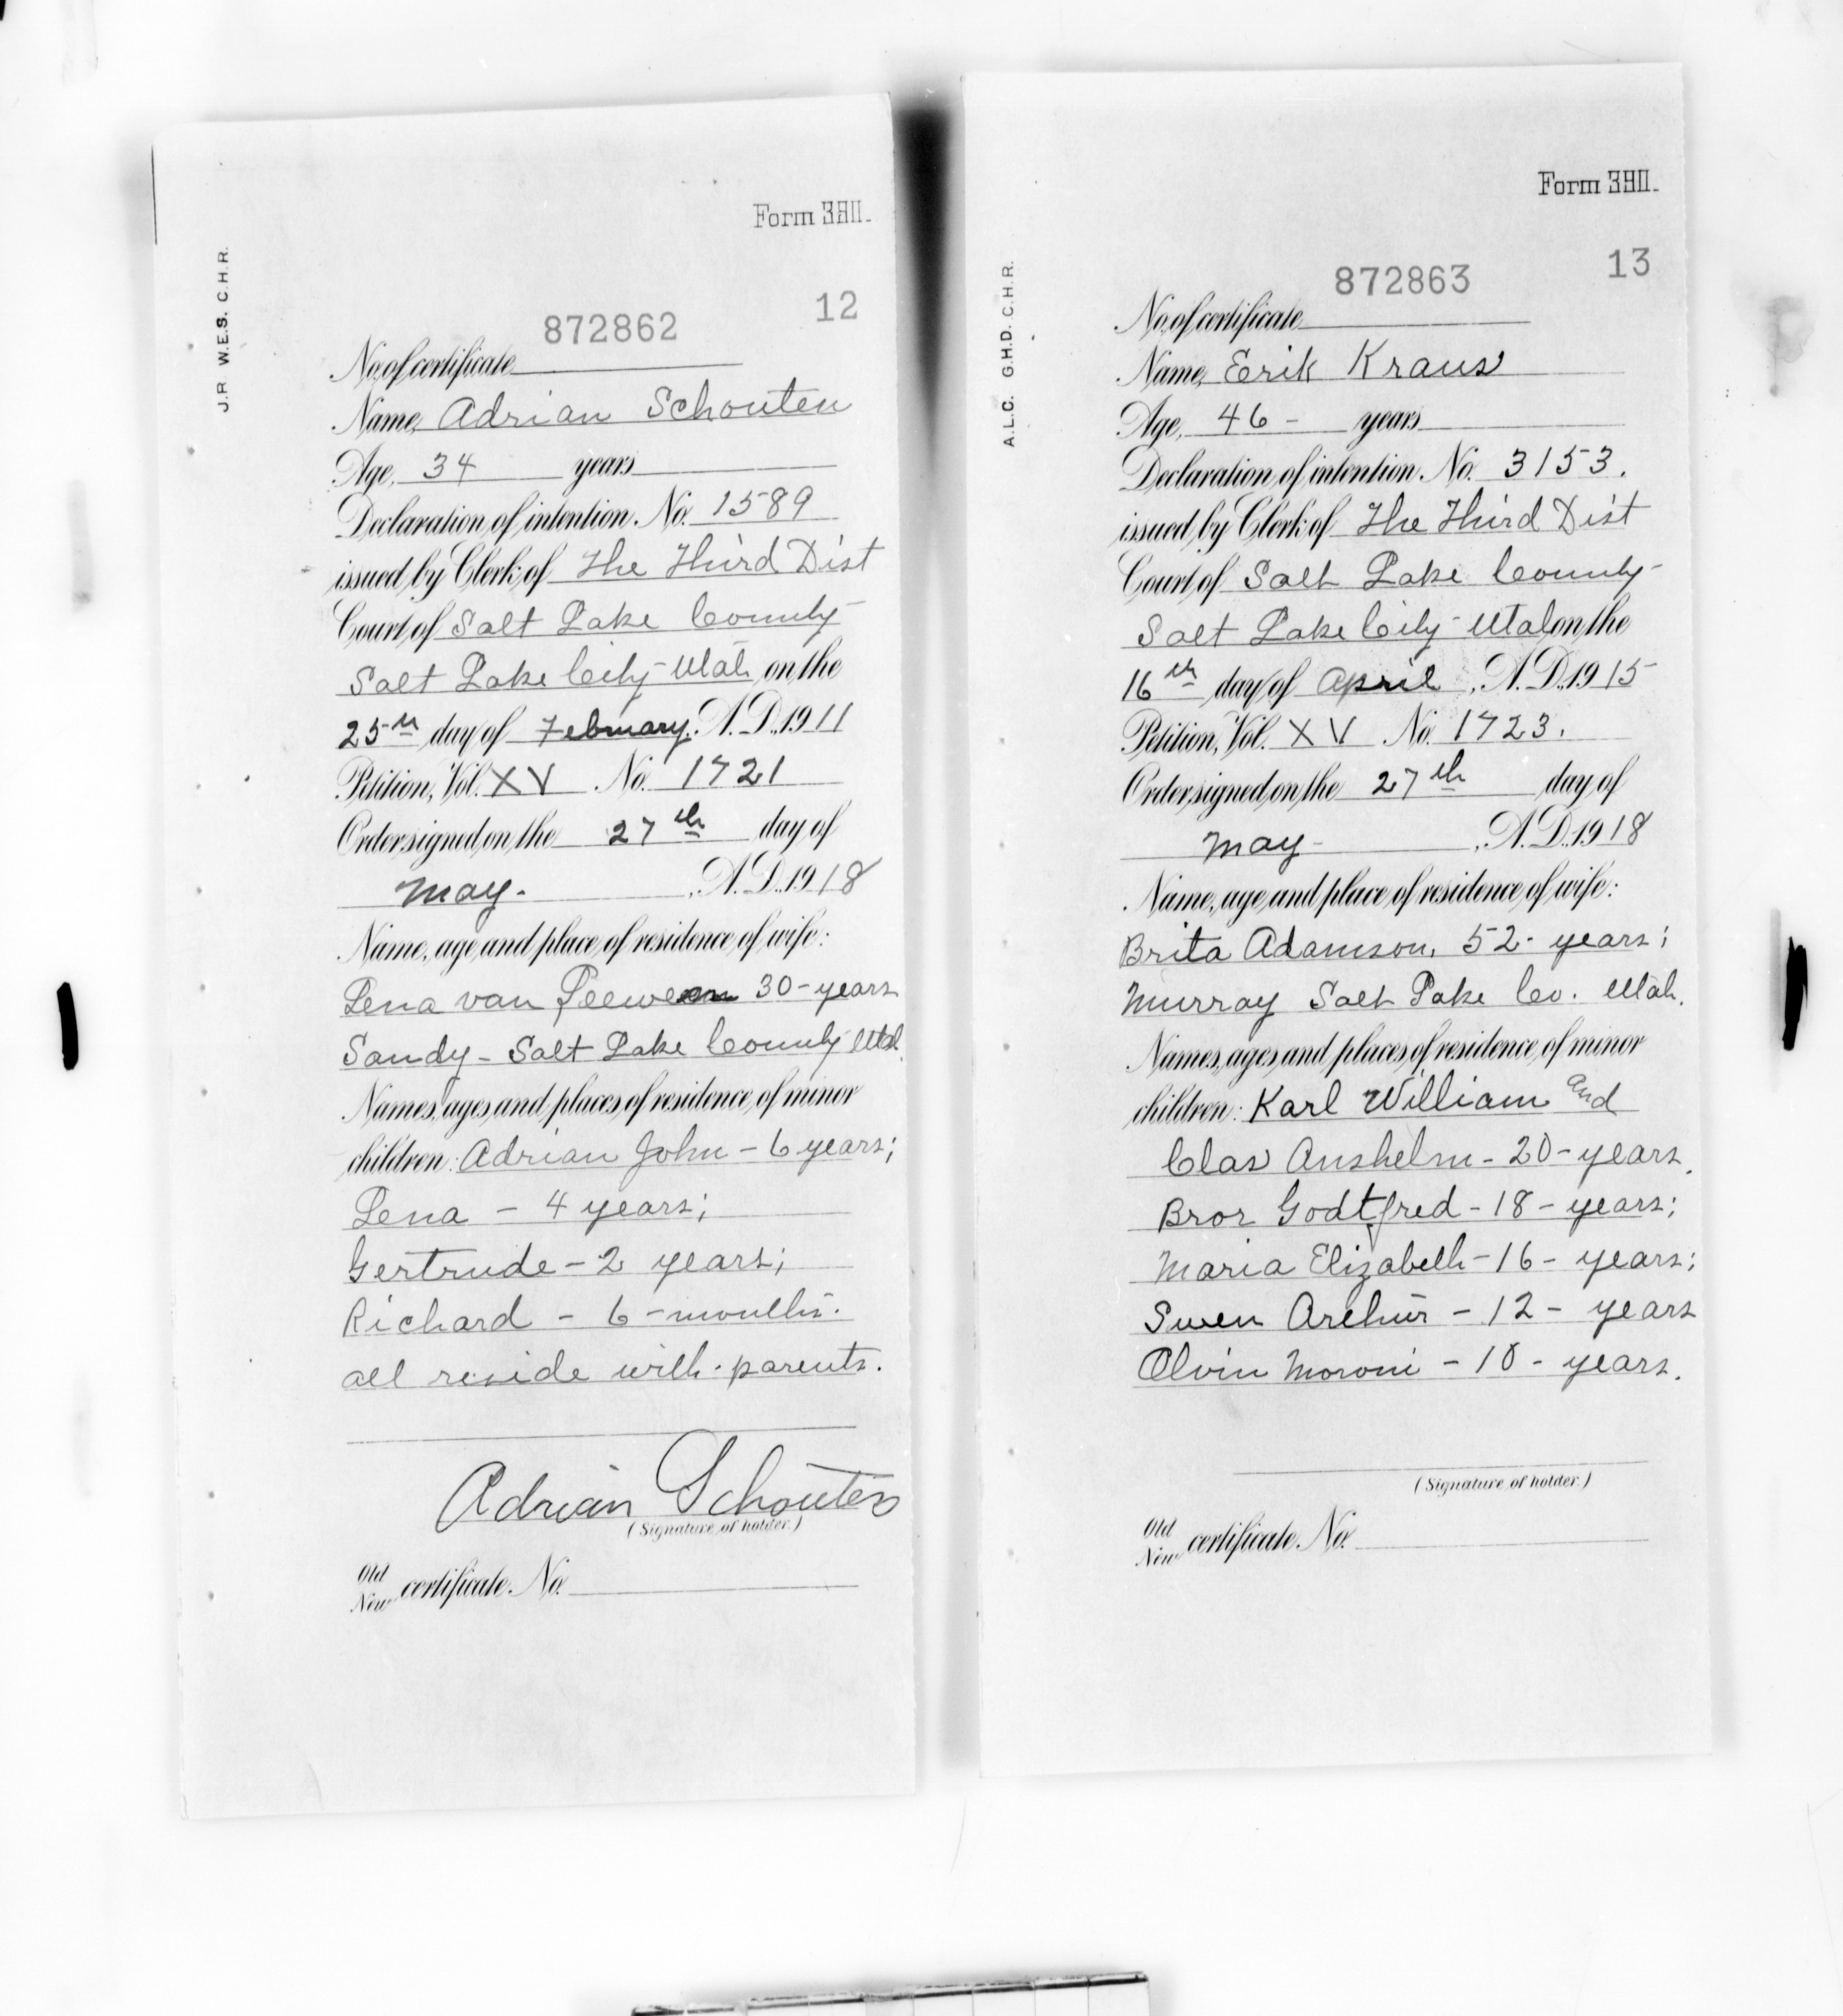 Form 3811.
J.R. W.E.S. C.H.R.
12
872862
No. of certificate
Name, Adrian Schouten
Age, 34 years
Declaration of intention No. 1589
issued by Clerk of The Third Dist
Court of Salt Lake County
Salt Lake City Utah on the
25th day of February, A.D. 1911
Petition, Vol. XV No. 1721
Order signed on the 27th day of
May. , A.D. 1918
Name, age and place of residence of wife:
Lena van Leeween 30 - years
Sandy - Salt Lake County Utah.
Names, ages and places of residence of minor
children: Adrian John - 6 years;
Lena - 4 years;
Gertrude - 2 years;
Richard - 6 - months.
all reside with parents.
Adrian Schouten
(Signature of holder.)
Old
New certificate No.
Form
A.L.C. G.H.D. C.H.R.
13
872863
No. of certificate
Name, Erik Kraus
Age, 46 - years
Declaration of intention No. 3153.
issued by Clerk of The Third Dist
Court of Salt Lake County
Salt Lake City Utah on the
16th day of April, A.D. 1915
Petition, Vol. XV No. 1723.
Order signed on the 27th day of
May , A.D. 1918
Name, age and place of residence of wife:
Brita Adamson, 52 - years;
Murray Salt Lake Co. Utah.
Names, ages and places of residence of minor
children: Karl William and
Clas Anshelm - 20 - years.
Bror Godtfred - 18 - years;
Maria Elizabeth - 16 - years;
Swen Arthur - 12 - years
Alvin Moroni - 10 - years.
(Signature of holder.)
Old
New certificate No.